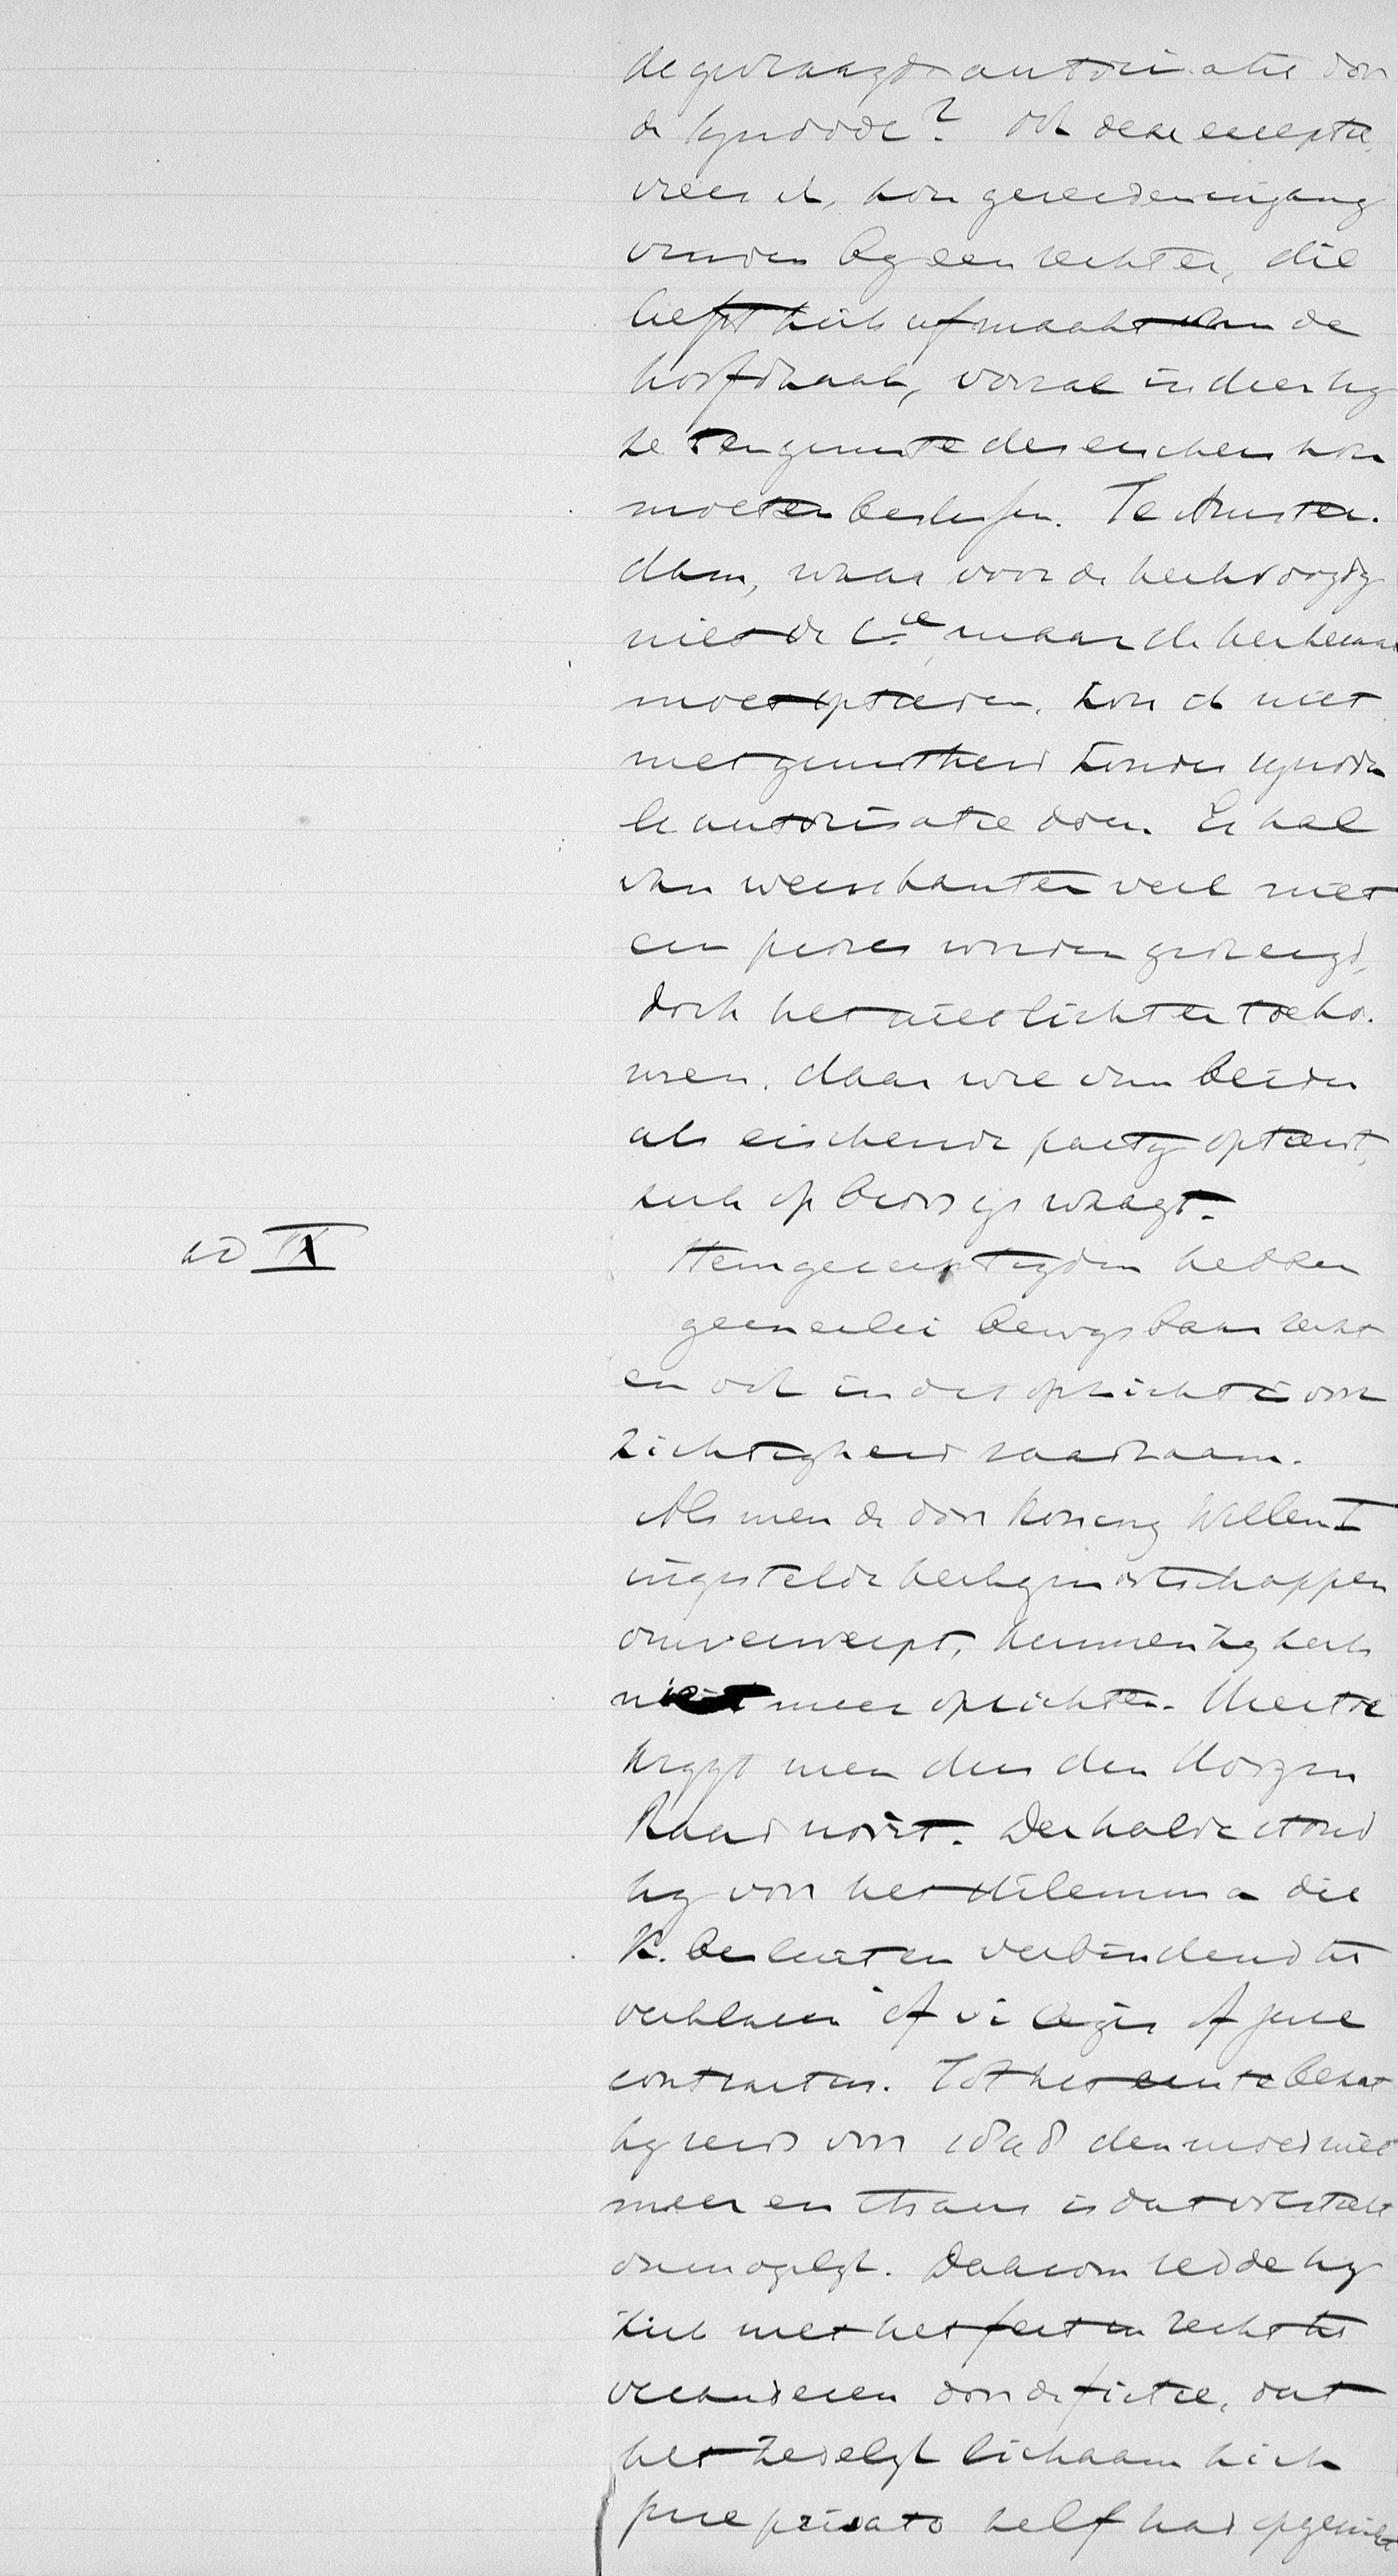 de gevraagde autorisatie door
de synode? Ook deze exceptie,
vrees ik, zou gereeden ingang
vinden by een rechter, die
liefst zich afmaakt van de
hoofdzaak, vooral indien hy
ze ten gunste des eischers zou
moeten beslissen. Te Amster-
dam, waar voor de kerkvoogdy
niet de Cie, maar de kerkeraad
moet optreden, zou ik niet
met gerustheid zonder synoda
le autorisatie doen. Er zal
van weerskanten veel met
een proces worden gedreigd,
doch het niet licht er toe ko-
men, daar wie van beiden
als eischende party optreedt,
zich op broos ys waagt.
ad IX
Stemgerechtigden hebben
geenerlei bewysbaar recht
en ook in dat opzicht is voor
zichtigheid raadzaam.
Als men de door Koning Willem I
ingestelde kerkgenootschappen
omverwerpt, kunnen zy zich
niet meer oprichten. Hiertoe
krygt men dus den Hoogen
Raad nooit. Derhalve stond
hy voor het dilemma die
K. besluiten verbindend te
verklaren of vi legis of jure
contractus. Tot het eerste bezat
hy reeds voor 1848 den moed niet
meer en thans is dat volstrekt
onmogelyk. Daarom redde hy
zich met het feit in recht te
veranderen door de fictie, dat
het zedelyk lichaam zich
jure privato zelf had opgericht